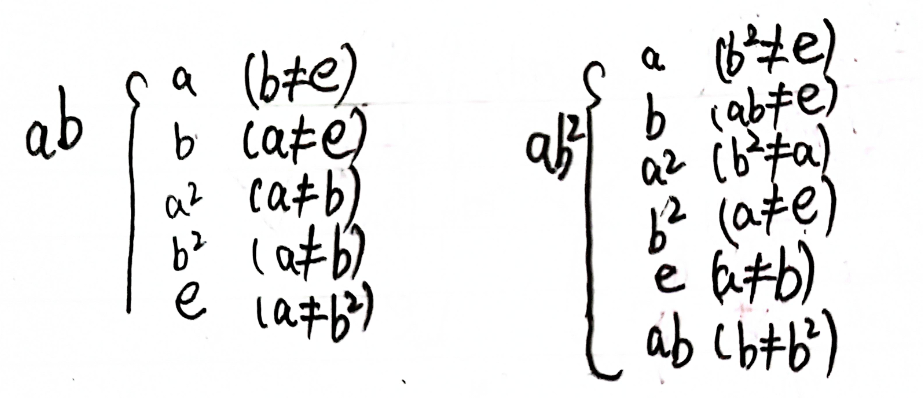 ab { a (b≠e)
b (a≠e)
a² (a≠b)
b² (a≠b)
e (a≠b²)
ab² { a (b²≠e)
b (ab≠e)
a² (b²≠a)
b² (a≠e)
e (a≠b)
ab (b≠b²)